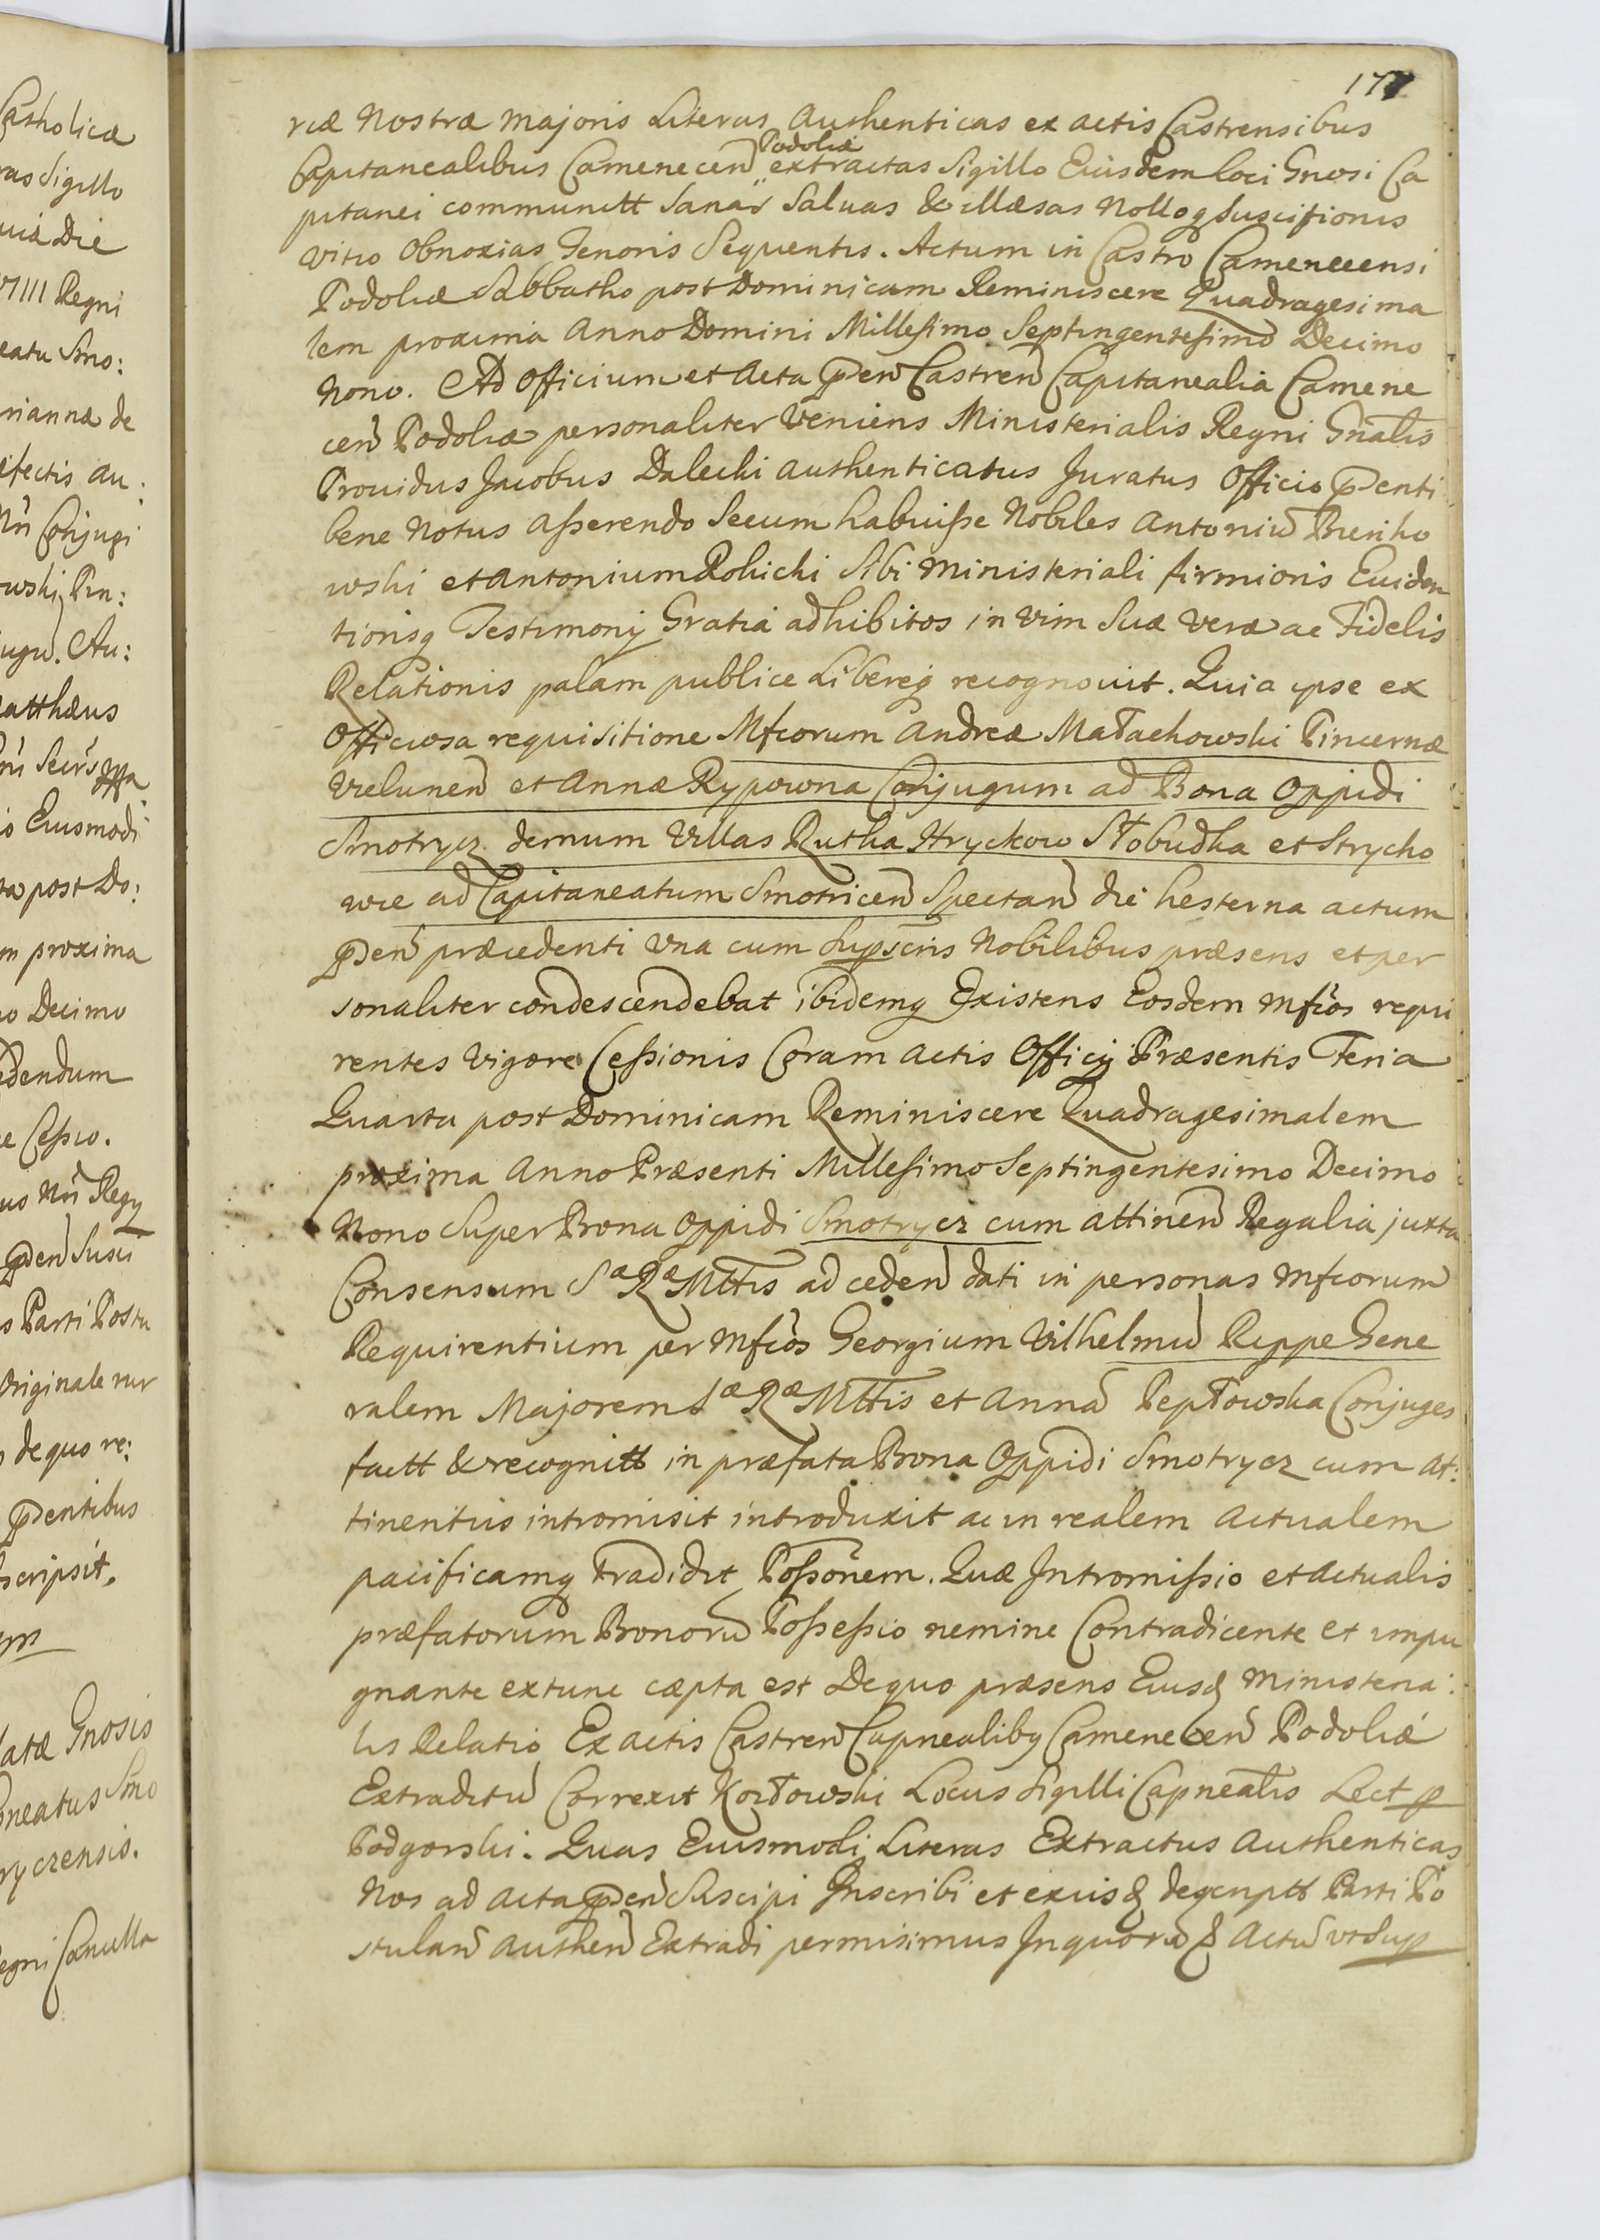 Catholicæ
ras Sigillo
quia Die
VIII Regni
eatu Smo:
riannæ de
efectis au:
Nri Conjugi
owski Pin:
ugū. Au:
Matthæus
o Eiusmodi
ta post Do:
m proxima
o Decimo
edendum
e Cessio.
us Nri Regy
pden Susci
s Parti Postu
Originale rur
s de quo re:
pdentibus
scripsit.
latæ Gnosis
oneatus Smo
ryczensis.
egni Camilla
177
riæ Nostræ Majoris Literas Authenticas ex actis Castrensibus
Capitanealibus Camenecen Podoliæ extractas Sigillo Eiusdem loci Gnosi Ca
pitanei communitt Sanas Saluas & illæsas Nolloq Suscipionis
vitio Obnoxias Tenoris Sequentis. Actum in Castro Camenecensi
Podoliæ Sabbatho post Dominicam Reminiscere Quadragesima
lem proxima Anno Domini Millesimo Septingentesimo Decimo
Nono. Ad Officium et Acta pden Castren Capitanealia Camene
cen Podoliæ personaliter Veniens Ministerialis Regni Gnalis
Prouidus Jacobus Dalecki authenticatus Juratus Officio pdenti
bene Notus asserendo Secum habuisse Nobiles Antoniū Bieńko
wski et Antonium Rokicki Sibi Ministeriali firmioris Euiden
tiorisq Testimonij Gratia adhibitos in vim Suæ veræ ac Fidelis
Relationis palam publice Libereq recognouit. Quia ipse ex
Officiosa requisitione Mfcorum Andreæ Małachowski Pincernæ
Vielunen et Annæ Rypowna Conjugum ad Bona Oppidi
Smotrycz demum Villas Rutka Hryckow Słobudka et Strycho
wce ad Capitaneatum Smotricen Spectan die hesterna actum
pden præcedenti Una cum Supscris Nobilibus præsens et per
sonaliter condescendebat ibidemq Existens Eosdem Mfcos requi
rentes Vigore Cessionis Coram Actis Officij Præsentis Feria
Quarta post Dominicam Reminiscere Quadragesimalem
proxima Anno Præsenti Millesimo Septingentesimo Decimo
Nono Super Bona Oppidi Smotrycz cum attinen Regalia juxta
Consensum Sæ Ræ Mttis ad ceden dati in personas Mfcorum
Requirentium per Mfcos Georgium Vilhelmū Reppe Gene
ralem Majorem Sæ Ræ Mttis et Annā Pepłowska Conjuges
factt & recognitt in præfata Bona Oppidi Smotrycz cum At:
tinentiis intromisit introduxit ac in realem Actualem
pacificamq tradidit Possonem. Quæ Intromissio et Actualis
præfatorum Bonorū Possessio nemine Contradicente et impu
gnante extunc cæpta est De quo præsens Eiusd Ministeria:
lis Relatio Ex actis Castren Capnealibq Camenecen Podoliæ
Extraditū Correxit Kozłowski Locus Sigilli Capnealis Lect p
Podgorski. Quas Eiusmodi Literas Extractus Authenticas
Nos ad Acta pden Suscipi Inscribi et exiisd descriptt Parti Po
stulan Authen Extradi permisimus In quorū & Actū vt Sup